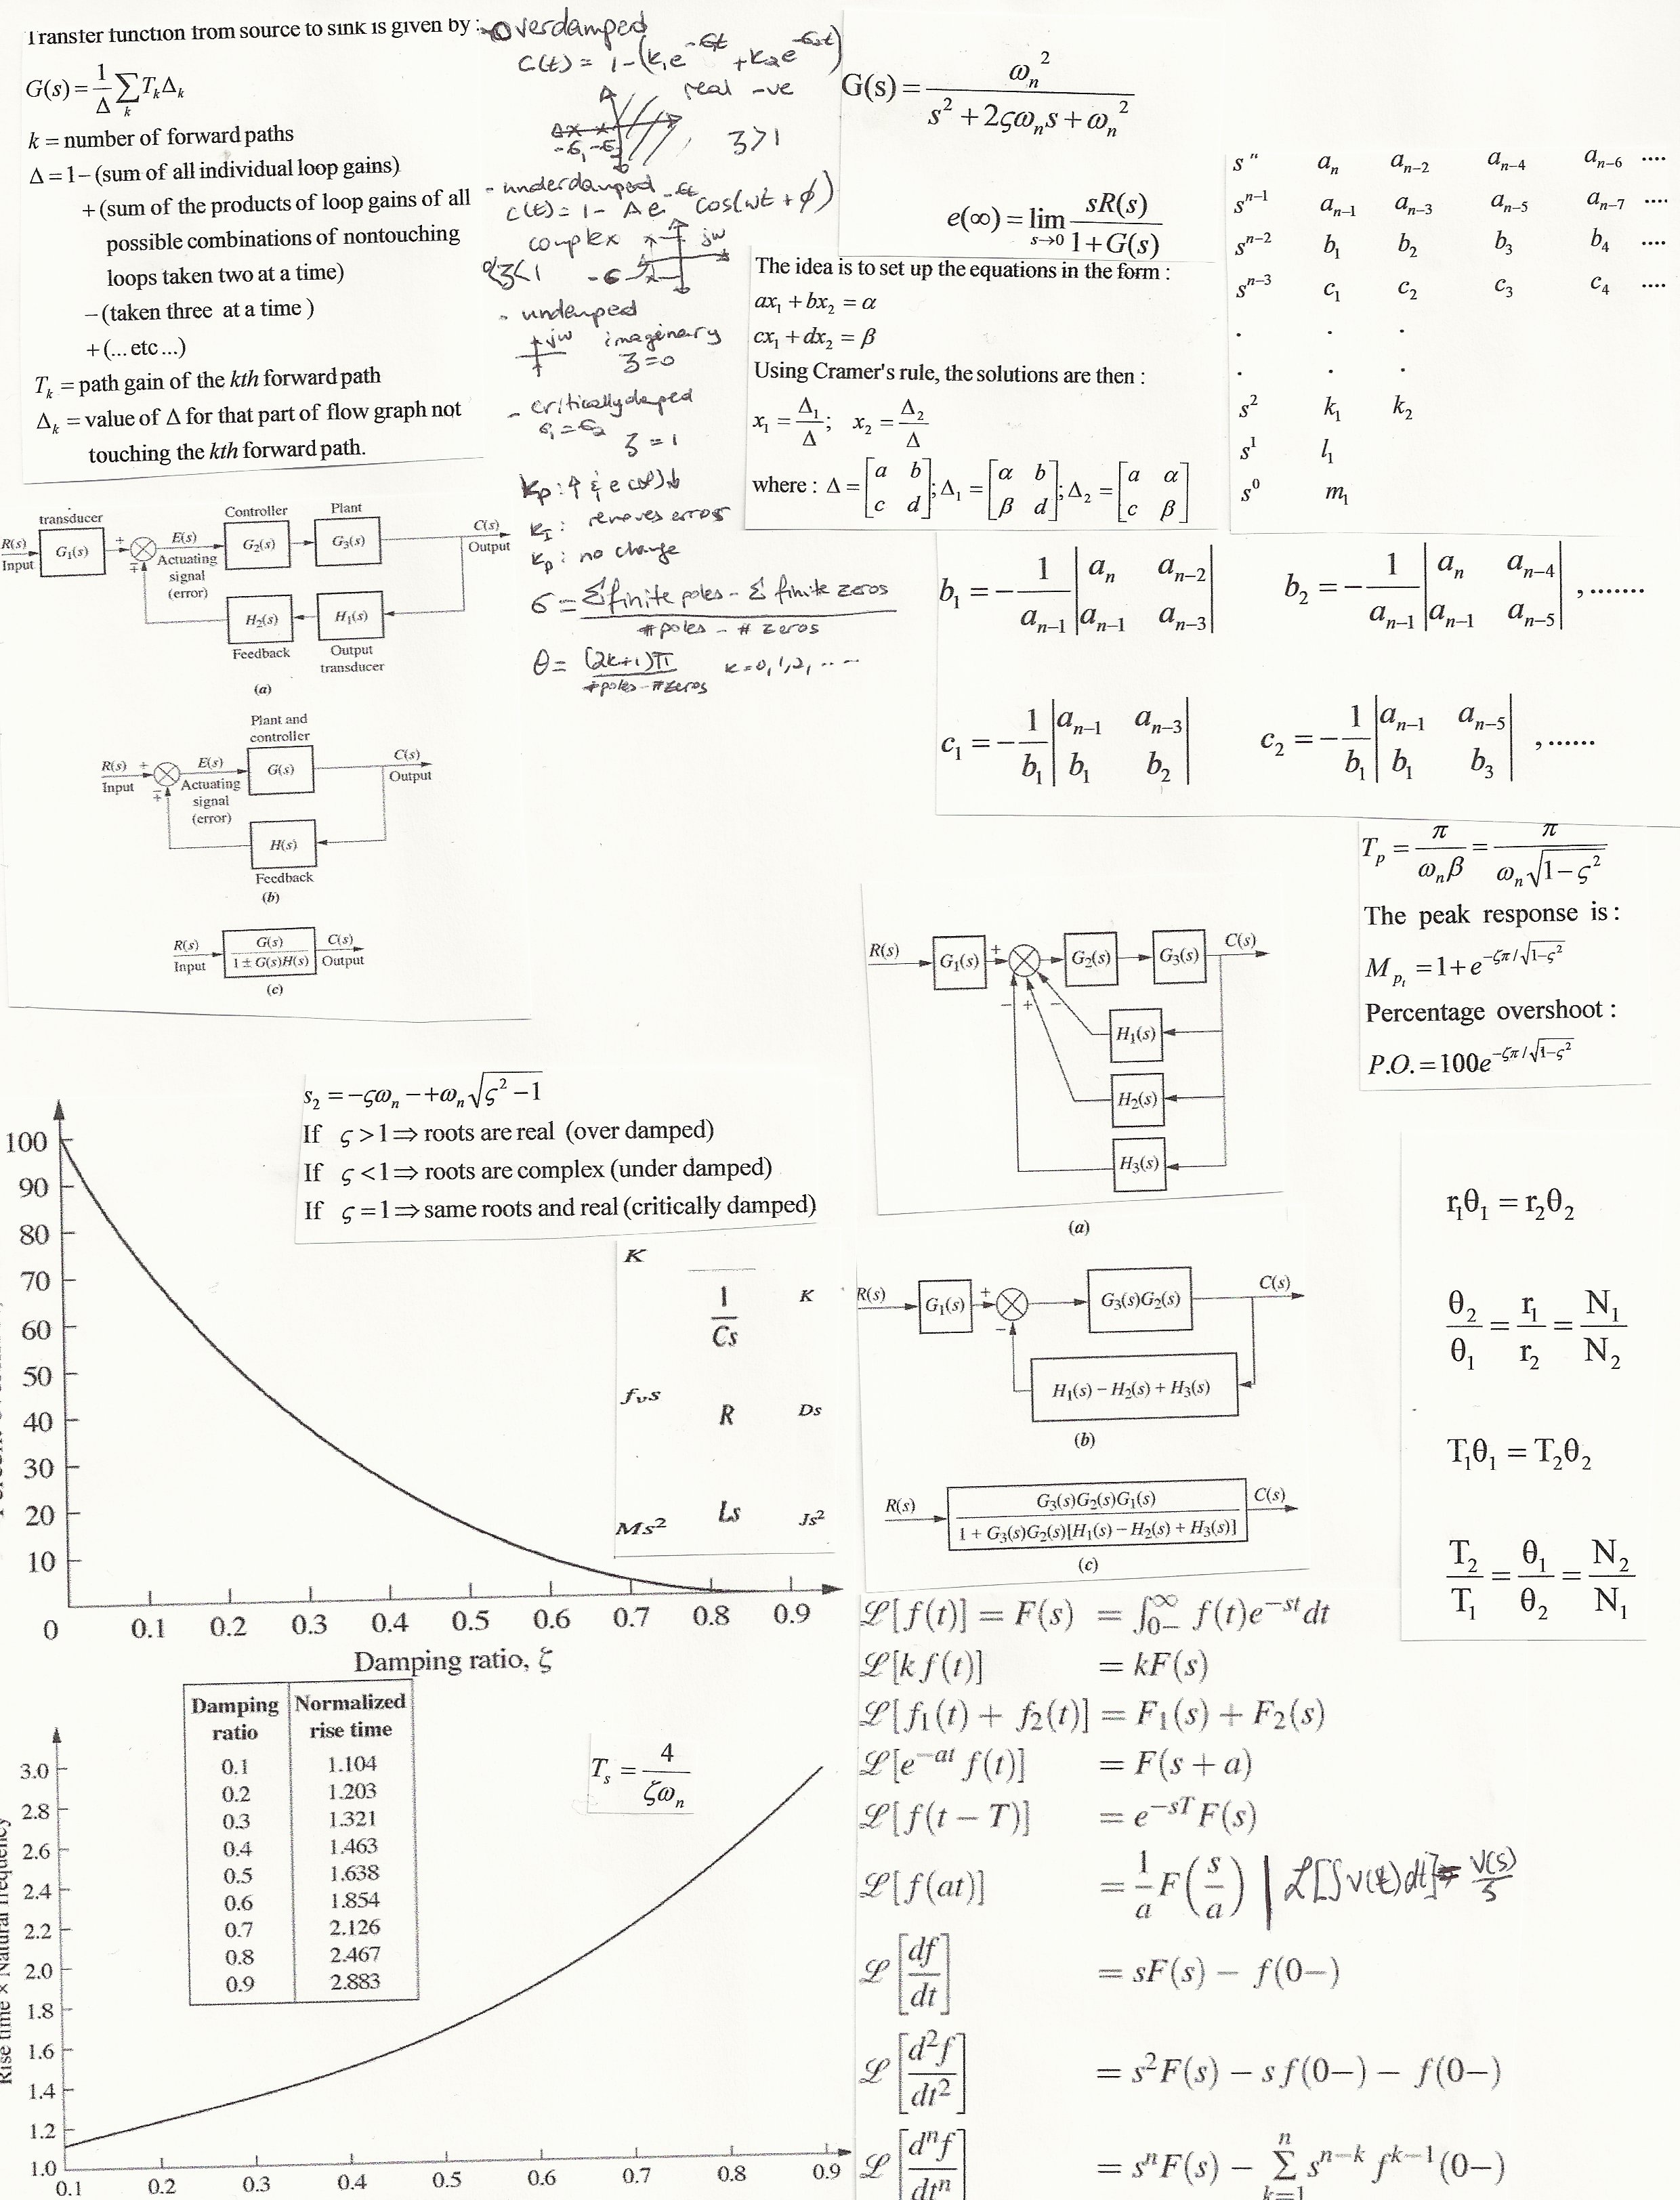 Transfer function from source to sink is given by :
G(s) = 1/Δ ∑k TkΔk
k = number of forward paths
Δ = 1− (sum of all individual loop gains)
+ (sum of the products of loop gains of all
possible combinations of nontouching
loops taken two at a time)
− (taken three at a time )
+ (... etc ...)
Tk = path gain of the kth forward path
Δk = value of Δ for that part of flow graph not
touching the kth forward path.
- overdamped
C(t) = 1 - (k1e^-σ1t + k2e^-σ2t)
real -ve
-σ1 -σ2
ζ>1
- underdamped
C(t) = 1 - Ae^-σt cos(ωt + φ)
complex
jω
0<ζ<1 -σ
- undamped
jω imaginary
ζ=0
- critically damped
σ1 = σ2
ζ = 1
kp: ↑ & e(∞)↓
kI: removes error
kp: no change
σ = Σ finite poles - Σ finite zeros / # poles - # zeros
θ = (2k+1)π / #poles - #zeros k=0,1,2, ....
G(s) = ωn² / s² + 2ςωns + ωn²
e(∞) = lim s→0 sR(s) / 1+G(s)
The idea is to set up the equations in the form :
ax1 + bx2 = α
cx1 + dx2 = β
Using Cramer's rule, the solutions are then :
x1 = Δ1/Δ; x2 = Δ2/Δ
where : Δ = [a b; c d]; Δ1 = [α b; β d]; Δ2 = [a α; c β]
s^n an an−2 an−4 an−6 ....
s^n−1 an−1 an−3 an−5 an−7 ....
s^n−2 b1 b2 b3 b4 ....
s^n−3 c1 c2 c3 c4 ....
. . .
. . .
s² k1 k2
s¹ l1
s⁰ m1
b1 = − 1/an−1 |an an−2; an−1 an−3| b2 = − 1/an−1 |an an−4; an−1 an−5| ,.......
c1 = − 1/b1 |an−1 an−3; b1 b2| c2 = − 1/b1 |an−1 an−5; b1 b3| ,......
transducer
Controller
Plant
R(s)
Input
G1(s)
+
∓
E(s)
Actuating
signal
(error)
G2(s)
G3(s)
C(s)
Output
H2(s)
H1(s)
Feedback
Output
transducer
(a)
Plant and
controller
R(s)
Input
+
∓
E(s)
Actuating
signal
(error)
G(s)
C(s)
Output
H(s)
Feedback
(b)
R(s)
Input
G(s)
1 ± G(s)H(s)
C(s)
Output
(c)
Tp = π/ωnβ = π/ωn√1−ς²
The peak response is :
Mpt = 1 + e^−ζπ/√1−ς²
Percentage overshoot :
P.O. = 100e^−ζπ/√1−ς²
R(s)
G1(s)
+
G2(s)
G3(s)
C(s)
− + −
H1(s)
H2(s)
H3(s)
(a)
R(s)
G1(s)
+
−
G3(s)G2(s)
C(s)
H1(s) − H2(s) + H3(s)
(b)
R(s)
G3(s)G2(s)G1(s)
1 + G3(s)G2(s)[H1(s) − H2(s) + H3(s)]
C(s)
(c)
s2 = −ςωn −+ωn√ς² −1
If ς >1⇒ roots are real (over damped)
If ς <1⇒ roots are complex (under damped)
If ς =1⇒ same roots and real (critically damped)
K
1/Cs
K
fvs
R
Ds
Ms²
Ls
Js²
100
90
80
70
60
50
40
30
20
10
0
0.1 0.2 0.3 0.4 0.5 0.6 0.7 0.8 0.9
Damping ratio, ζ
r1θ1 = r2θ2
θ2/θ1 = r1/r2 = N1/N2
T1θ1 = T2θ2
T2/T1 = θ1/θ2 = N2/N1
Damping ratio Normalized rise time
0.1 1.104
0.2 1.203
0.3 1.321
0.4 1.463
0.5 1.638
0.6 1.854
0.7 2.126
0.8 2.467
0.9 2.883
Ts = 4/ζωn
Rise time × Natural frequency
3.0
2.8
2.6
2.4
2.2
2.0
1.8
1.6
1.4
1.2
1.0
0.1 0.2 0.3 0.4 0.5 0.6 0.7 0.8 0.9
ℒ[f(t)] = F(s) = ∫0−^∞ f(t)e^−st dt
ℒ[kf(t)] = kF(s)
ℒ[f1(t) + f2(t)] = F1(s) + F2(s)
ℒ[e^−at f(t)] = F(s + a)
ℒ[f(t − T)] = e^−sT F(s)
ℒ[f(at)] = 1/a F(s/a) | ℒ[∫v(t)dt] = V(s)/s
ℒ[df/dt] = sF(s) − f(0−)
ℒ[d²f/dt²] = s²F(s) − sf(0−) − f(0−)
ℒ[dⁿf/dtⁿ] = sⁿF(s) − Σ k=1 n s^n−k f^k−1(0−)